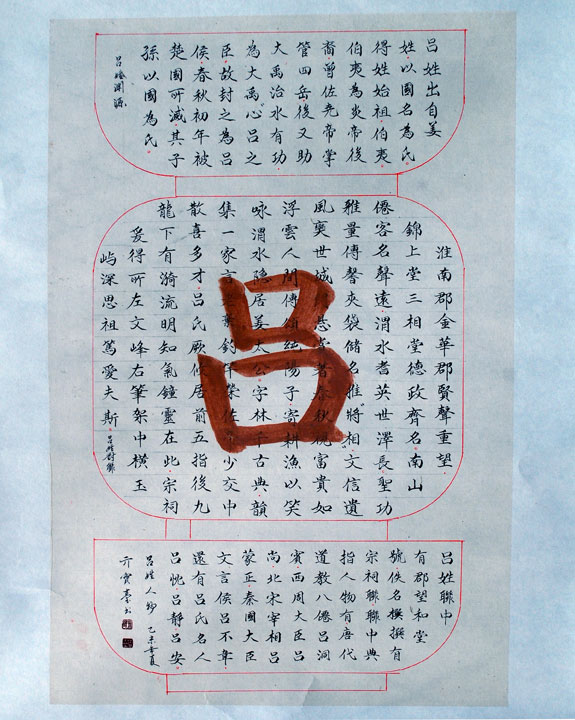 吕姓出自姜
姓以國名為氏。
得姓始祖伯夷
伯夷為炎帝後
裔曾佐堯帝掌
管四岳後又助
大禹治水有功。
為大禹心吕之
臣故封之為吕
侯春秋初年被
楚國所滅。其子
孫以國為氏。
吕姓淵源
淮南郡金華郡賢聲重望。
錦上堂三相堂德政齊名。南山
僊客名聲遠渭水耆英世澤長聖功
雅量傳聲夾袋儲名推將相。文信遺
風奭世城字者春秋富貴如
浮雲人間傳純陽子寄耕漁以笑
咏渭水隐居姜太公字林千古典韻
集一家言釣佐少交中
散喜多才吕氏厥居前五指後九
龍下有漪流明知氣鐘靈在此宗祠
爰得所左文峰右筆架中横玉
屿深思祖篤愛夫斯。
吕姓對聯
吕
吕姓聯中
有郡望和堂
號佚名撰撰有
宗祠聯聯中典
指人物有唐代
道教八僊吕洞
賓西周大臣吕
尚北宋宰相吕
蒙正秦國大臣
文言侯吕不韋
還有吕氏名人
吕忱吕靜吕安
吕姓人物